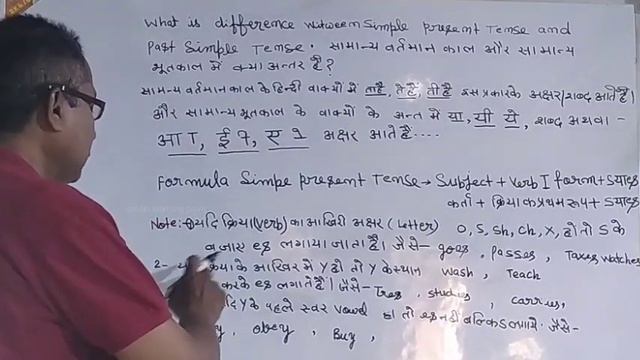 What is difference witween simple present Tense and
Past Simple Tense. सामान्य वर्तमान काल और सामान्य
भूतकाल में क्या अन्तर है?
सामान्य वर्तमान काल के हिन्दी वाक्यों में ता है, ते हैं, ती है इस प्रकार के अक्षर/शब्द आते हैं।
और सामान्य भूतकाल के वाक्यों के अन्त में या, यी ये, शब्द अथवा -
आ ा, ई ी, ए े अक्षर आते हैं....
Formula Simpe present Tense → Subject + Verb I form + s या es
कर्ता + क्रिया का प्रथम रूप + s या es
Note:- यदि क्रिया (verb) का आखिरी अक्षर (Letter) O, S, Sh, Ch, X, हो तो S के
बजाए es लगाया जाता है। जैसे - goes, Passes, Taxes, watches
2- के आखिर में Y हो तो Y के स्थान wash, Teach
करके es लगाते हैं। जैसे - Tres, studies, carries,
Y के पहले स्वर vowel हो तो es नहीं बल्कि S लगाये. जैसे-
obey, Buy,